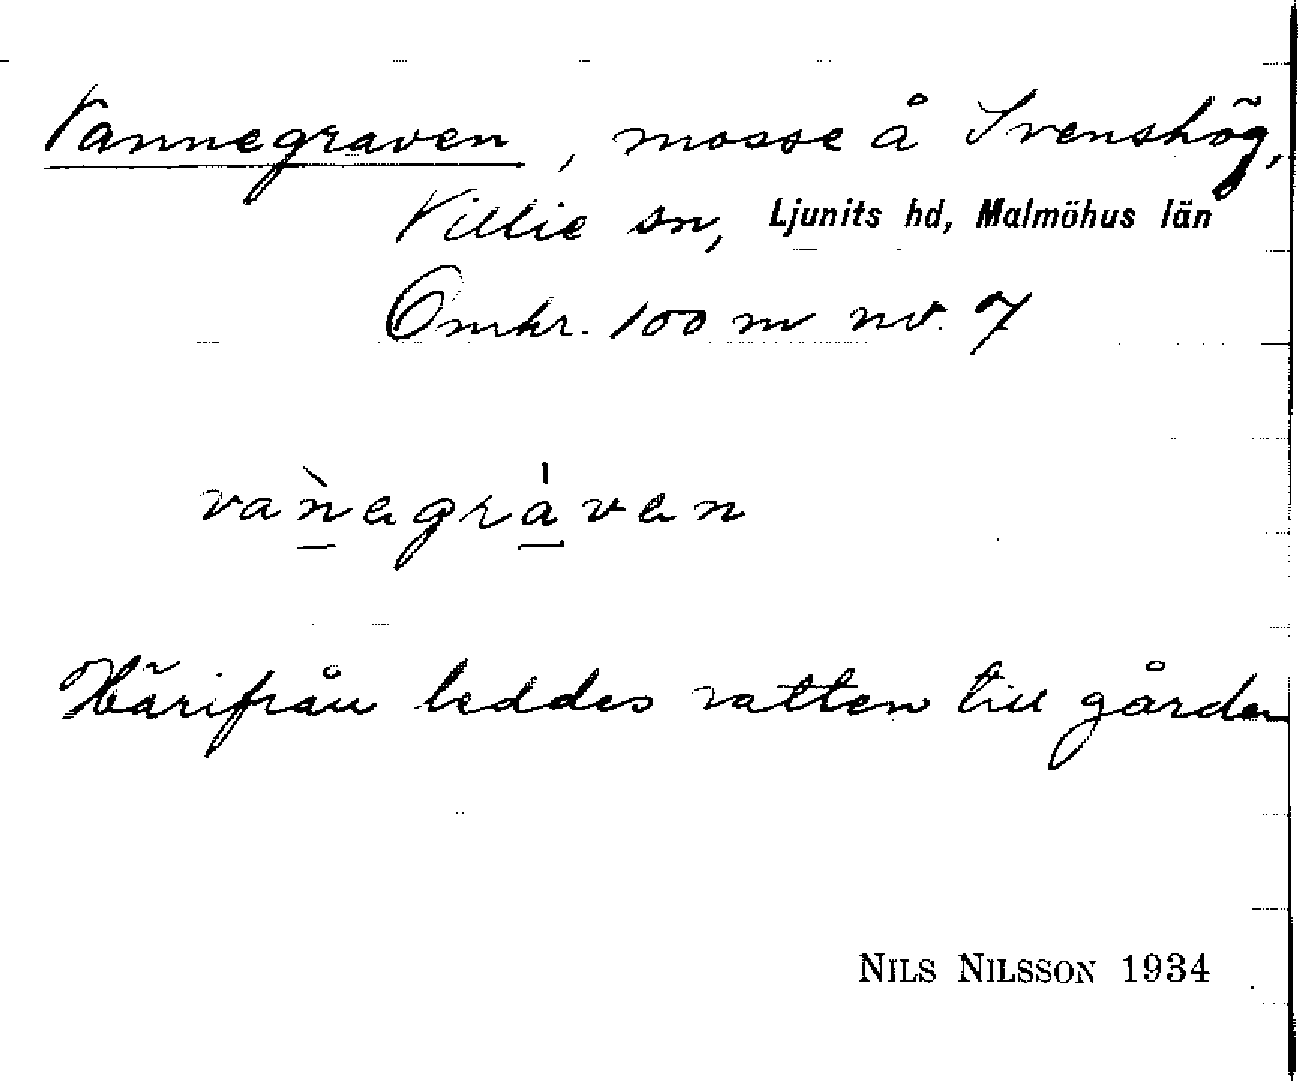 Vannegraven, mosse å Svenshög,
Villie sn, Ljunits hd, Malmöhus län
Omkr. 100 m nv. 7
vàǹegráven
Härifrån leddes vatten till gården
NILS NILSSON 1934